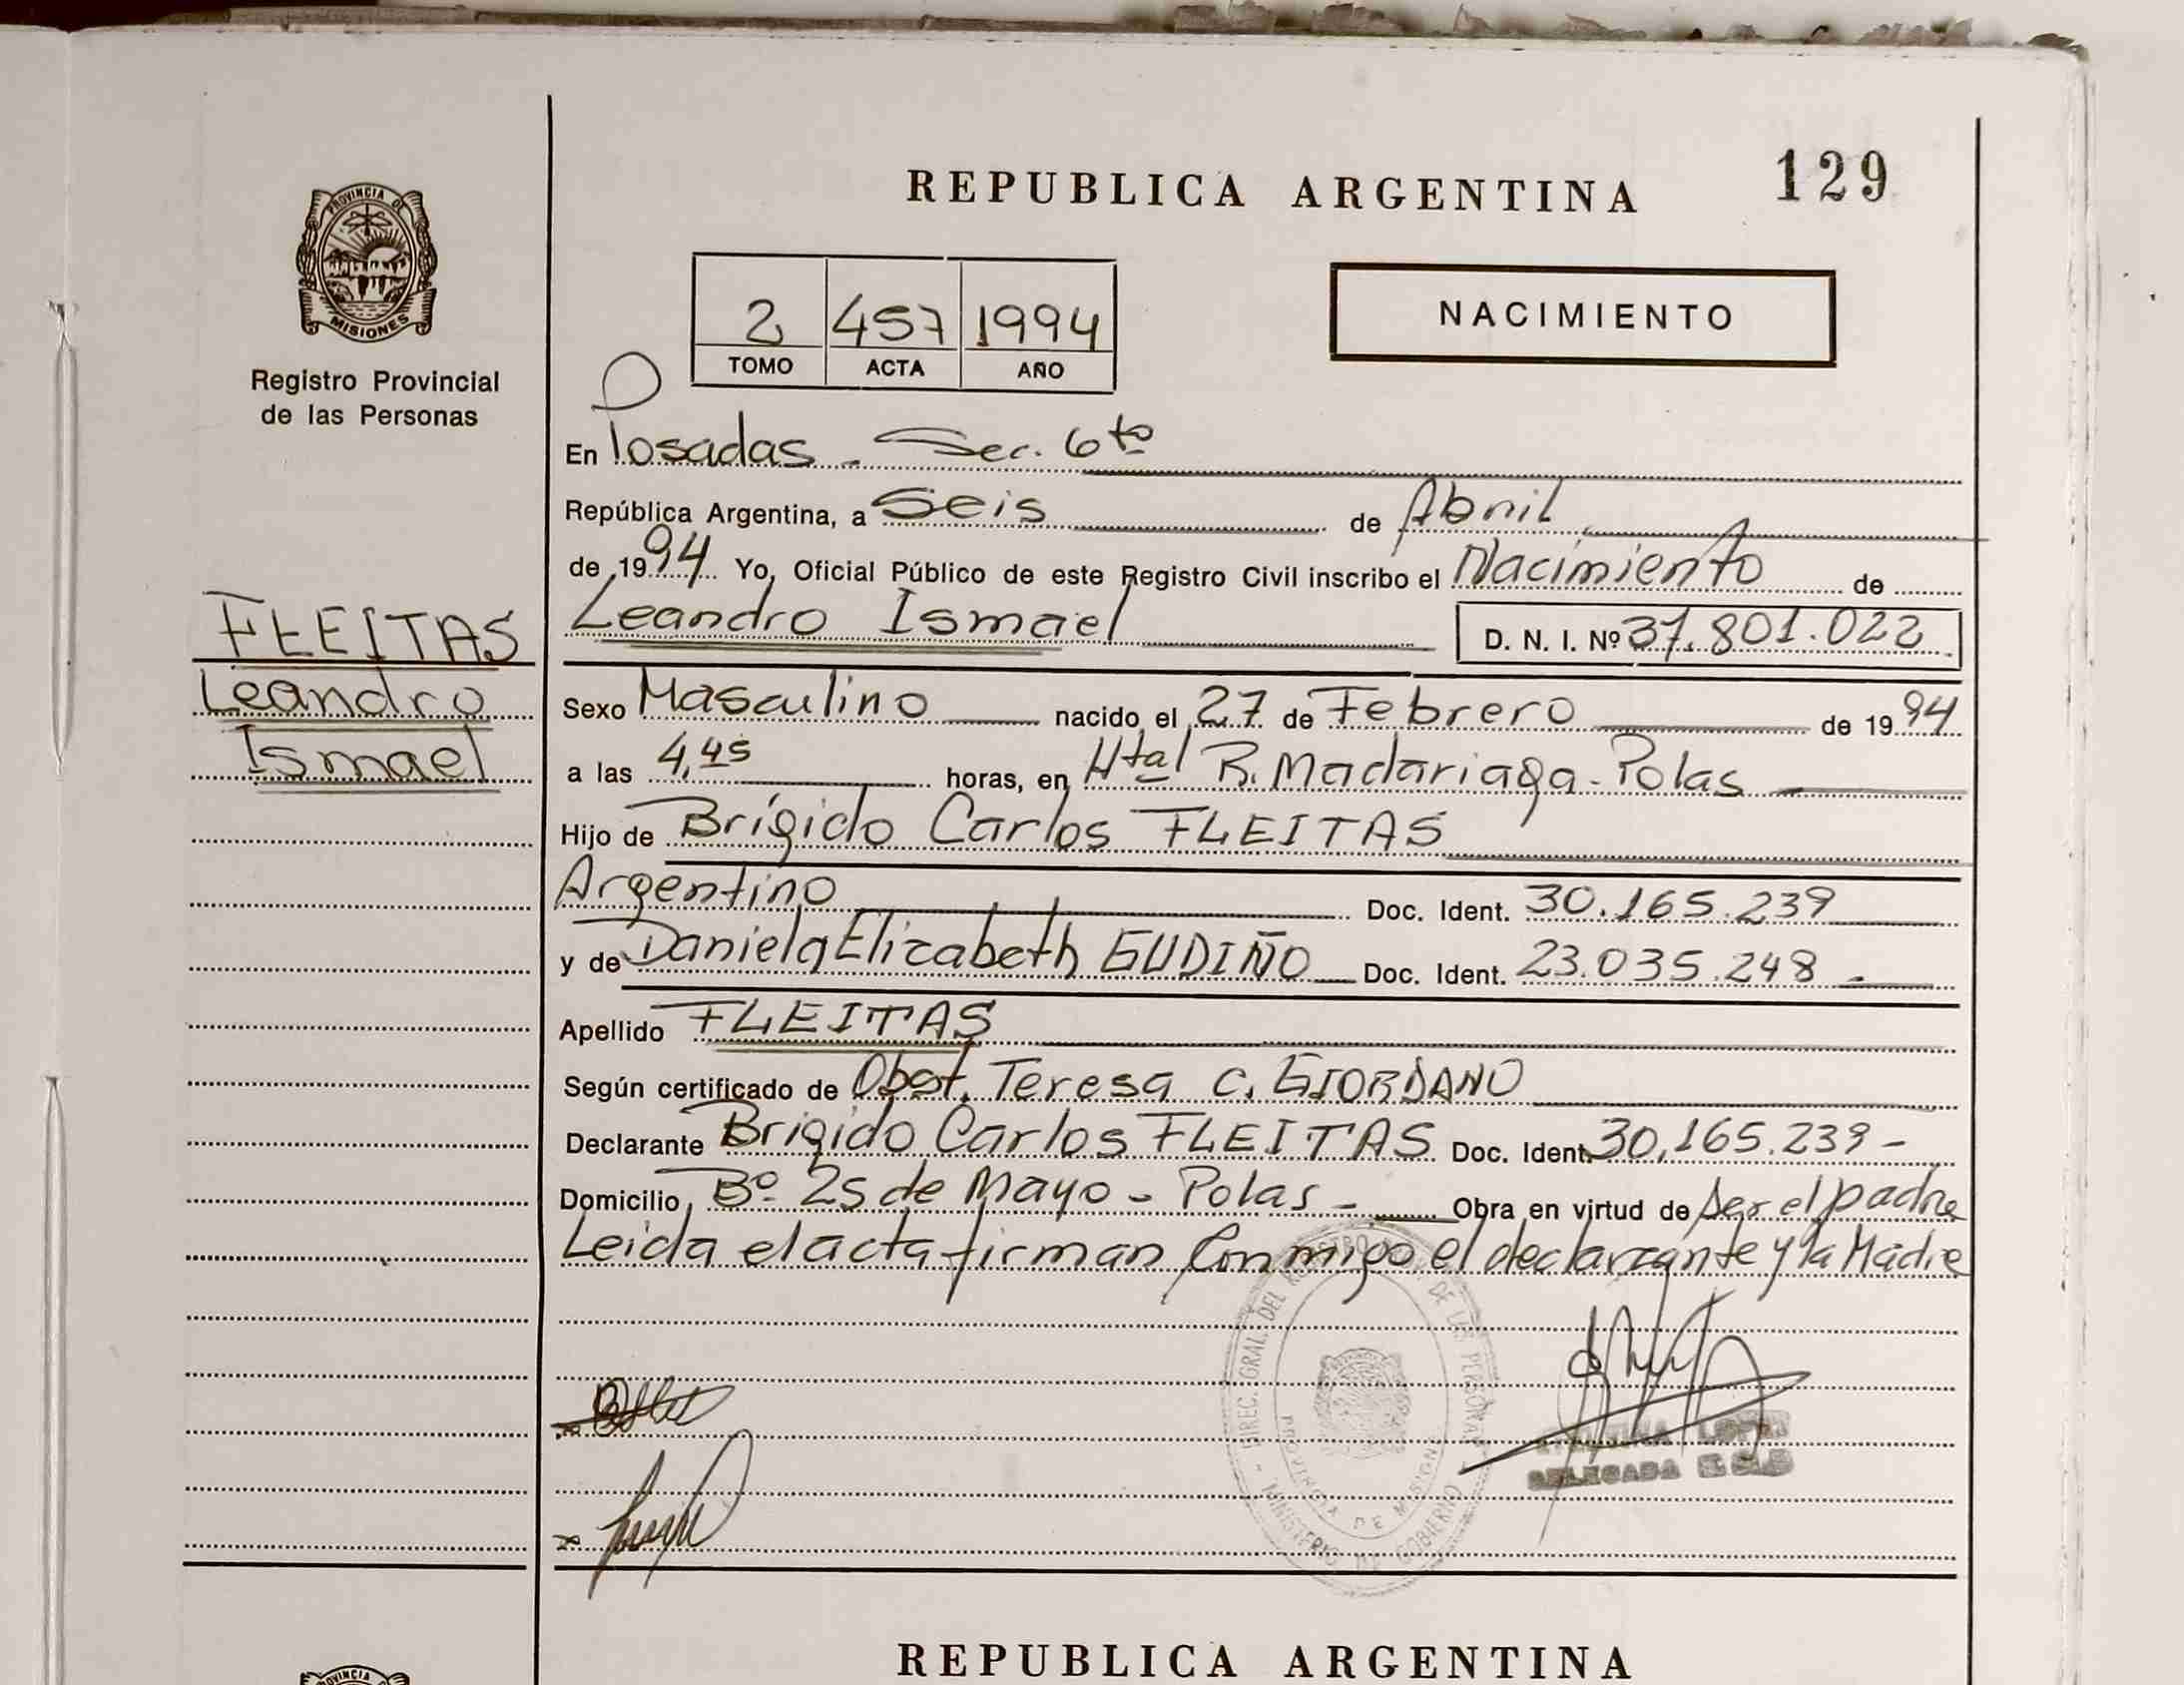 REPUBLICA ARGENTINA
129
PROVINCIA DE
MISIONES
Registro Provincial
de las Personas
2 457 1994
TOMO ACTA AÑO
NACIMIENTO
En Posadas - Sec. 6to
República Argentina, a Seis de Abril
de 1994 Yo, Oficial Público de este Registro Civil inscribo el Nacimiento de
Leandro Ismael D. N. I. Nº 37.801.022
FLEITAS
Leandro
Ismael
Sexo Masculino nacido el 27 de Febrero de 1994
a las 4,45 horas, en Htal R. Madariaga - Pdas
Hijo de Brígido Carlos FLEITAS
Argentino Doc. Ident. 30.165.239
y de Daniela Elizabeth GUDIÑO Doc. Ident. 23.035.248
Apellido FLEITAS
Según certificado de Obst. Teresa C. GIORDANO
Declarante Brigido Carlos FLEITAS Doc. Ident. 30.165.239 -
Domicilio Bº 25 de Mayo - Pdas - Obra en virtud de ser el padre
Leida el acta firman conmigo el declarante y la Madre
DIREC. GRAL. DEL REGISTRO DE LAS PERSONAS
MINISTERIO DE GOBIERNO
PROVINCIA DE MISIONES
DELEGADA
REPUBLICA ARGENTINA
PROVINCIA